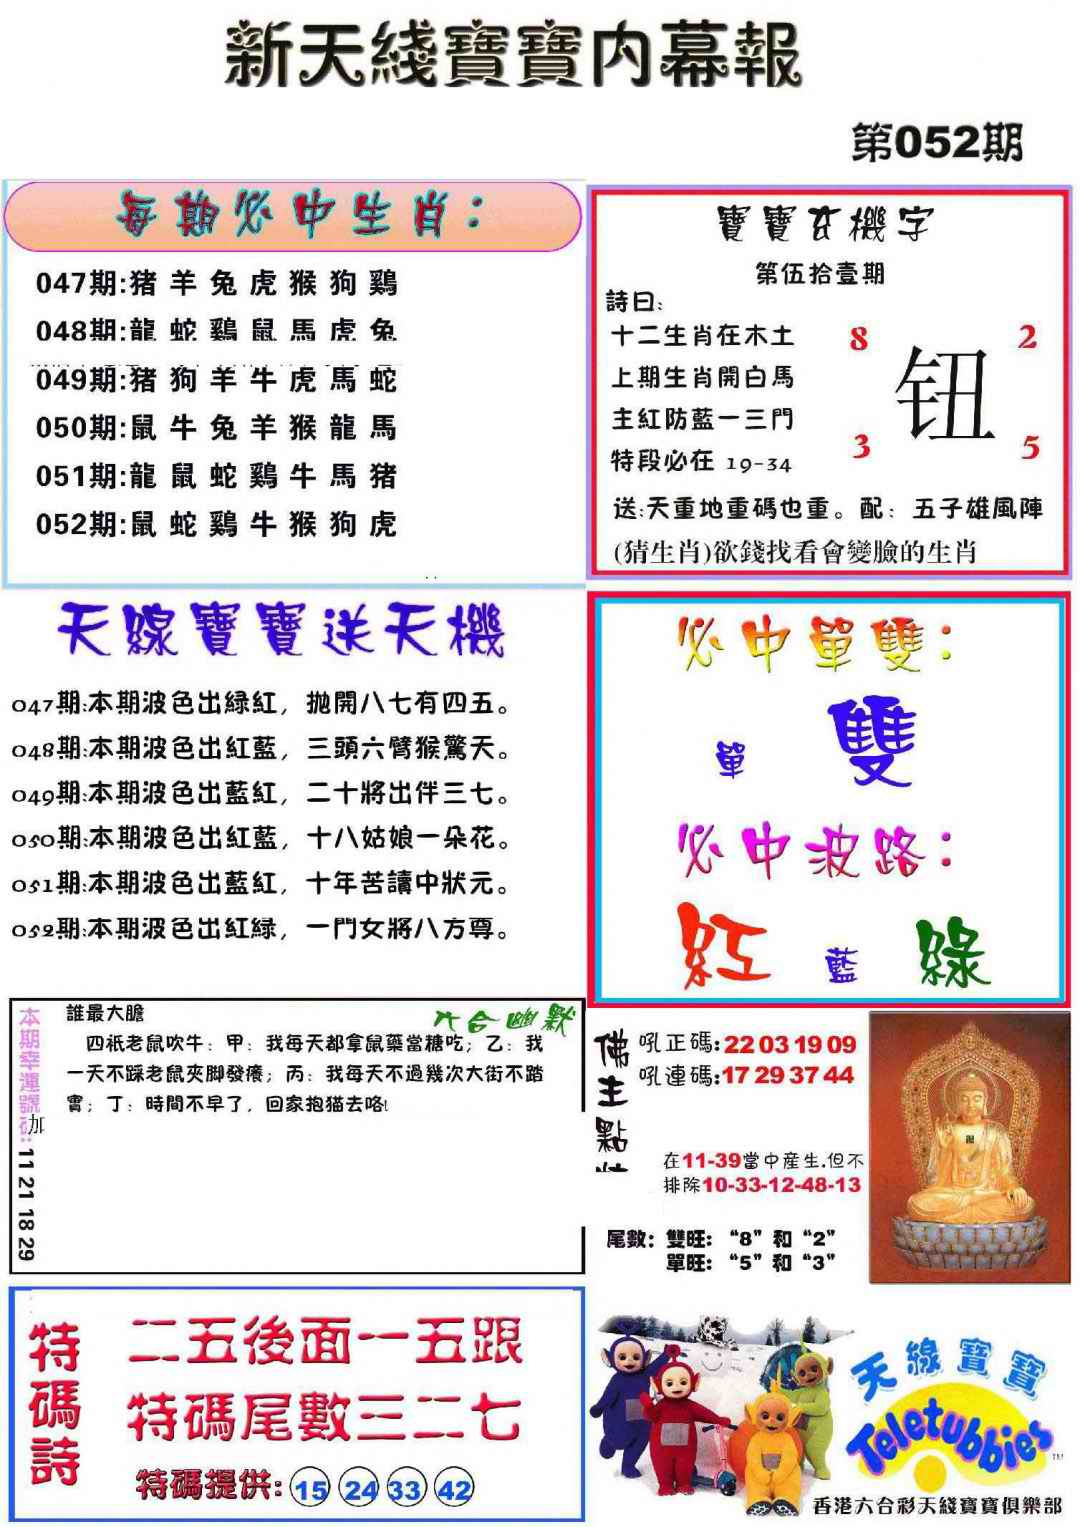 新天綫寶寶内幕報
第052期
每期必中生肖：
047期:猪 羊 兔 虎 猴 狗 鷄
048期:龍 蛇 鷄 鼠 馬 虎 兔
049期:猪 狗 羊 牛 虎 馬 蛇
050期:鼠 牛 兔 羊 猴 龍 馬
051期:龍 鼠 蛇 鷄 牛 馬 猪
052期:鼠 蛇 鷄 牛 猴 狗 虎
寶寶玄機字
第伍拾壹期
詩曰:
十二生肖在木土
上期生肖開白馬
主紅防藍一三門
特段必在 19-34
8 2
钮
3 5
送:天重地重碼也重。配：五子雄風陣
(猜生肖)欲錢找看會變臉的生肖
天線寶寶送天機
047期:本期波色出緑紅，拋開八七有四五。
048期:本期波色出紅藍，三頭六臂猴驚天。
049期:本期波色出藍紅，二十將出伴三七。
050期:本期波色出紅藍，十八姑娘一朵花。
051期:本期波色出藍紅，十年苦讀中狀元。
052期:本期波色出紅緑，一門女將八方尊。
必中單雙：
單 雙
必中波路：
紅 藍 綠
本期幸運號碼:
加
11 21 18 29
六合幽默
誰最大膽
四衹老鼠吹牛：甲：我每天都拿鼠藥當糖吃；乙：我
一天不踩老鼠夾脚發癢；丙：我每天不過幾次大街不踏
實；丁：時間不早了，回家抱猫去咯!
佛主點
吼正碼:22 03 19 09
吼連碼:17 29 37 44
在11-39當中産生.但不
排除10-33-12-48-13
尾數：雙旺：“8”和“2”
單旺：“5”和“3”
特碼詩
二五後面一五跟
特碼尾數三二七
特碼提供: 15 24 33 42
天線寶寶
Teletubbies
TM
香港六合彩天綫寶寶俱樂部